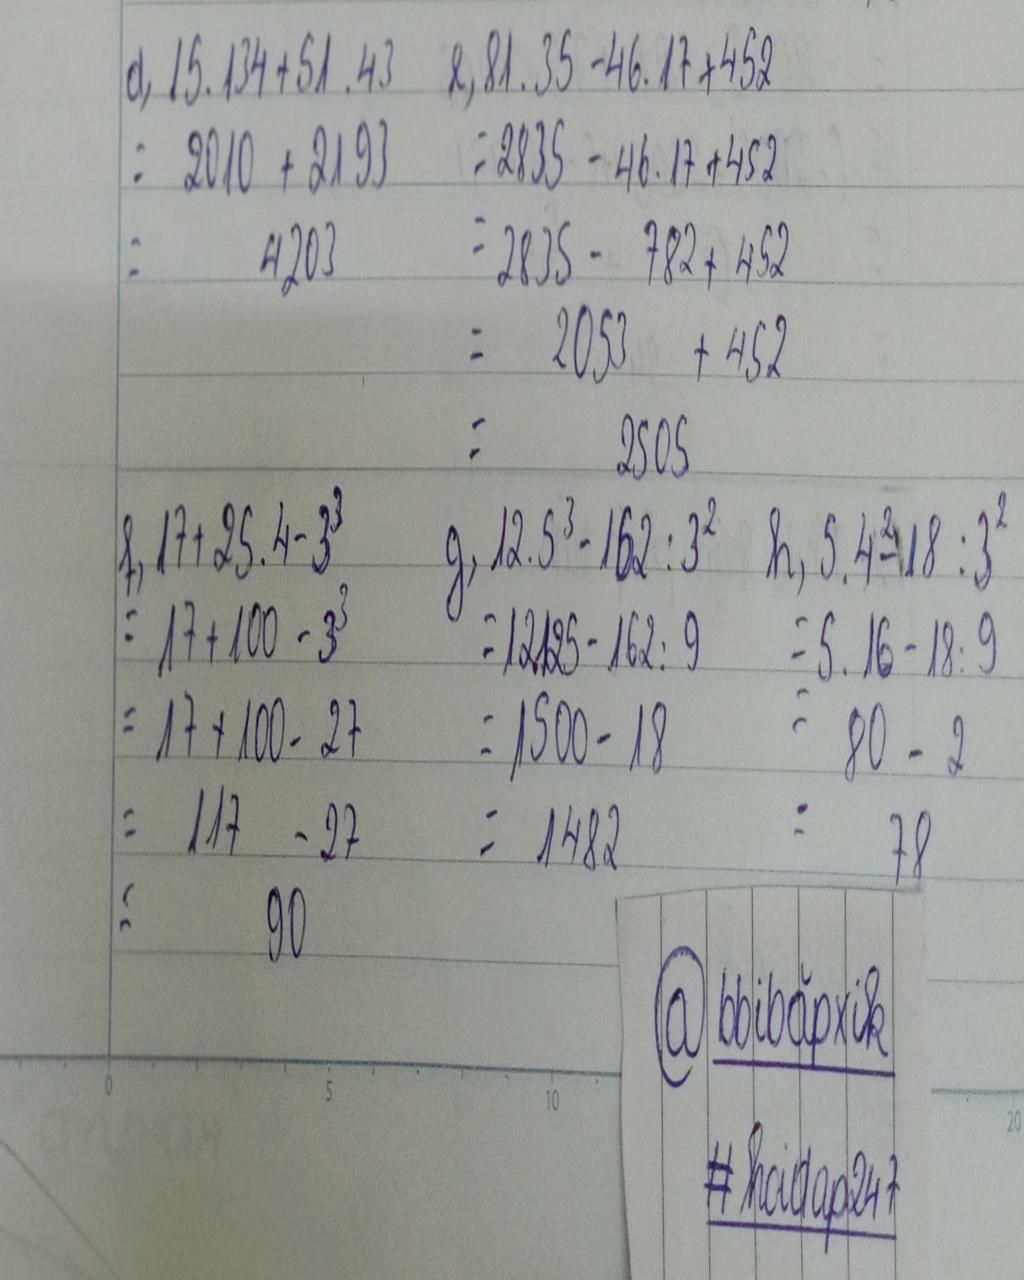 d, 15.134+51.43
= 2010 + 2193
= 4203
e, 81.35 - 46.17 + 452
= 2835 - 46.17 + 452
= 2835 - 782 + 452
= 2053 + 452
= 2505
f, 17 + 25.4 - 3³
= 17 + 100 - 3³
= 17 + 100 - 27
= 117 - 27
= 90
g, 12.5³ - 162 : 3²
= 12.125 - 162 : 9
= 1500 - 18
= 1482
h, 5.4² - 18 : 3²
= 5.16 - 18 : 9
= 80 - 2
= 78
@bbibăpxik
#hoidap247
0 5 10 20